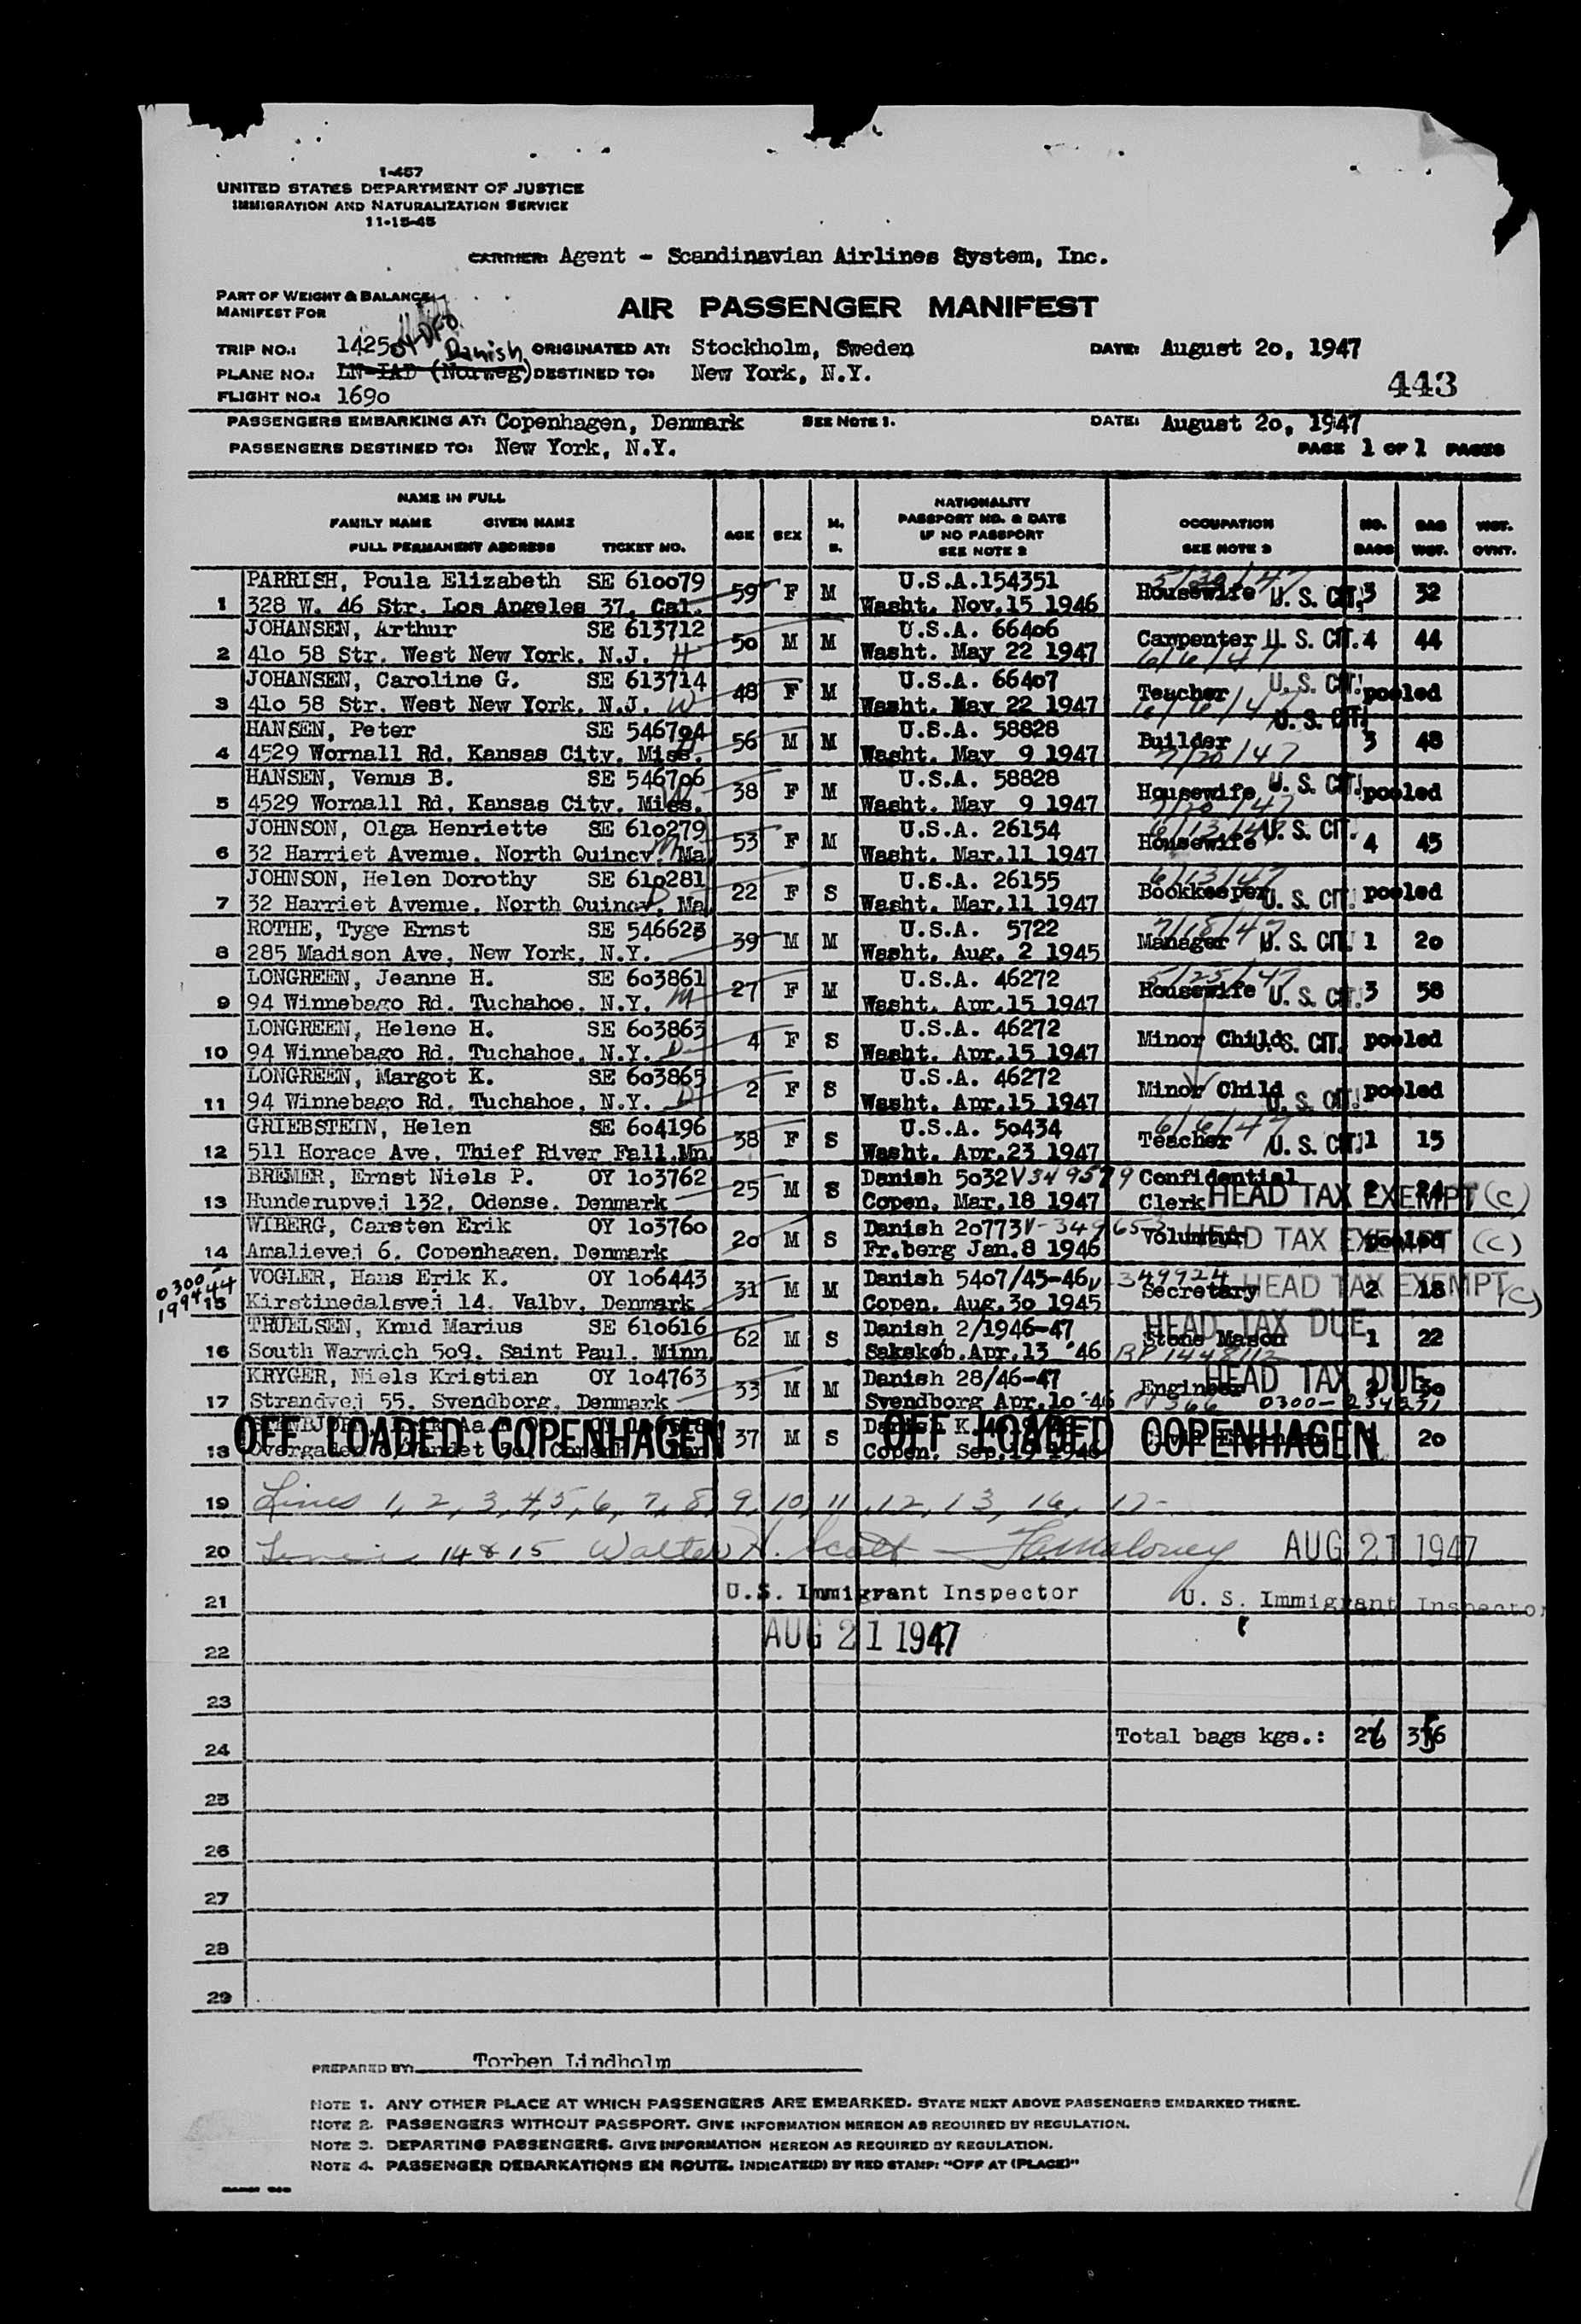 1-457
UNITED STATES DEPARTMENT OF JUSTICE
IMMIGRATION AND NATURALIZATION SERVICE
11-15-45
CARRIER: Agent - Scandinavian Airlines System, Inc.
PART OF WEIGHT & BALANCE
MANIFEST FOR
AIR PASSENGER MANIFEST
TRIP NO.: 1425 ORIGINATED AT: Stockholm, Sweden DATE: August 2o, 1947
Danish
PLANE NO.: LN-IAD (Norweg) DESTINED TO: New York, N.Y.
443
FLIGHT NO.: 169o
PASSENGERS EMBARKING AT: Copenhagen, Denmark SEE NOTE 1. DATE: August 2o, 1947
PASSENGERS DESTINED TO: New York, N.Y. PAGE 1 OF 1 PAGES
NAME IN FULL
FAMILY NAME GIVEN NAME
FULL PERMANENT ADDRESS TICKET NO.
AGE SEX M. S.
NATIONALITY
PASSPORT NO. & DATE
IF NO PASSPORT
SEE NOTE 2
OCCUPATION
SEE NOTE 3
NO. BAGS
BAG WGT.
WGT. OVNT.
PARRISH, Poula Elizabeth SE 61oo79 U.S.A.154351 5/20/47
1 328 W. 46 Str. Los Angeles 37, Cal. 59 F M Washt. Nov.15 1946 Housewife U. S. CIT. 3 32
JOHANSEN, Arthur SE 613712 U.S.A. 664o6
2 41o 58 Str. West New York, N.J. H 5o M M Washt. May 22 1947 Carpenter U. S. CIT. 4 44
6/6/47
JOHANSEN, Caroline G. SE 613714 U.S.A. 664o7
3 41o 58 Str. West New York, N.J. W 48 F M Washt. May 22 1947 Teacher U. S. CIT. pooled
6/6/47
HANSEN, Peter U.S.A. 58828 U. S. CIT.
4 4529 Wornall Rd, Kansas City, Miss. 56 M M Washt. May 9 1947 Builder 3 48
7/20/47
HANSEN, Venus B. SE 5467o6 U.S.A. 58828
5 4529 Wornall Rd, Kansas City, Miss. 38 F M Washt. May 9 1947 Housewife U. S. CIT. pooled
7/20/47
JOHNSON, Olga Henriette SE 61o279 U.S.A. 26154 6/13/47 U. S. CIT.
6 32 Harriet Avenue, North Quincy, Ma 53 F M Washt. Mar.11 1947 Housewife 4 45
JOHNSON, Helen Dorothy SE 61o281 U.S.A. 26155 6/13/47
7 32 Harriet Avenue, North Quincy, Ma 22 F S Washt. Mar.11 1947 Bookkeeper U. S. CIT. pooled
ROTHE, Tyge Ernst SE 546623 U.S.A. 5722 7/18/47
8 285 Madison Ave, New York, N.Y. 39 M M Washt. Aug. 2 1945 Manager U. S. CIT. 1 2o
LONGREEN, Jeanne H. SE 6o3861 U.S.A. 46272 5/25/47
9 94 Winnebago Rd. Tuchahoe, N.Y. M 27 F M Washt. Apr.15 1947 Housewife U. S. CIT. 3 58
LONGREEN, Helene H. SE 6o3863 U.S.A. 46272
10 94 Winnebago Rd. Tuchahoe, N.Y. D 4 F S Washt. Apr.15 1947 Minor Child U. S. CIT. pooled
LONGREEN, Margot K. SE 6o3865 U.S.A. 46272
11 94 Winnebago Rd. Tuchahoe, N.Y. D 2 F S Washt. Apr.15 1947 Minor Child U. S. CIT. pooled
GRIEBSTEIN, Helen SE 6o4196 U.S.A. 5o434 6/6/47
12 511 Horace Ave, Thief River Fall.Mn. 38 F S Washt. Apr.23 1947 Teacher U. S. CIT. 1 15
BREMER, Ernst Niels P. OY 1o3762 Danish 5o32 V349579 Confidential
13 Hunderupvej 132, Odense, Denmark 25 M S Copen. Mar.18 1947 Clerk HEAD TAX EXEMPT (C) 2 24
WIBERG, Carsten Erik OY 1o376o Danish 2o773 V-349653
14 Amalievej 6, Copenhagen, Denmark 2o M S Fr.berg Jan.8 1946 Voluntur HEAD TAX EXEMPT (C) pooled
0300-
199444
VOGLER, Hans Erik K. OY 1o6443 Danish 54o7/45-46 V 349924
15 Kirstinedalsvej 14, Valby, Denmark 31 M M Copen. Aug.3o 1945 Secretary HEAD TAX EXEMPT (C) 2 18
TRUELSEN, Knud Marius SE 61o616 Danish 2/1946-47 HEAD TAX DUE
16 South Warwich 5o9, Saint Paul, Minn 62 M S Sakskøb.Apr.13 '46 Stone Mason 1 22
RP 1448112
KRYGER, Niels Kristian OY 1o4763 Danish 28/46-47 HEAD TAX DUE
17 Strandvej 55, Svendborg, Denmark 33 M M Svendborg Apr.1o-46 Engineer 3o
366 0300-234271
OFF LOADED COPENHAGEN OFF LOADED COPENHAGEN
18 37 M S Copen. Sep.19 1946 1 2o
19 Lines 1, 2, 3, 4, 5, 6, 7, 8, 9, 10, 11, 12, 13, 16, 17-
20 14 & 15 Walter H. Scott AUG 21 1947
21 U.S. Immigrant Inspector U. S. Immigrant Inspector
22 AUG 21 1947
23
24 Total bags kgs.: 26
25
26
27
28
29
PREPARED BY: Torben Lindholm
NOTE 1. ANY OTHER PLACE AT WHICH PASSENGERS ARE EMBARKED. STATE NEXT ABOVE PASSENGERS EMBARKED THERE.
NOTE 2. PASSENGERS WITHOUT PASSPORT. GIVE INFORMATION HEREON AS REQUIRED BY REGULATION.
NOTE 3. DEPARTING PASSENGERS. GIVE INFORMATION HEREON AS REQUIRED BY REGULATION.
NOTE 4. PASSENGER DEBARKATIONS EN ROUTE. INDICATE(D) BY RED STAMP: "OFF AT (PLACE)"